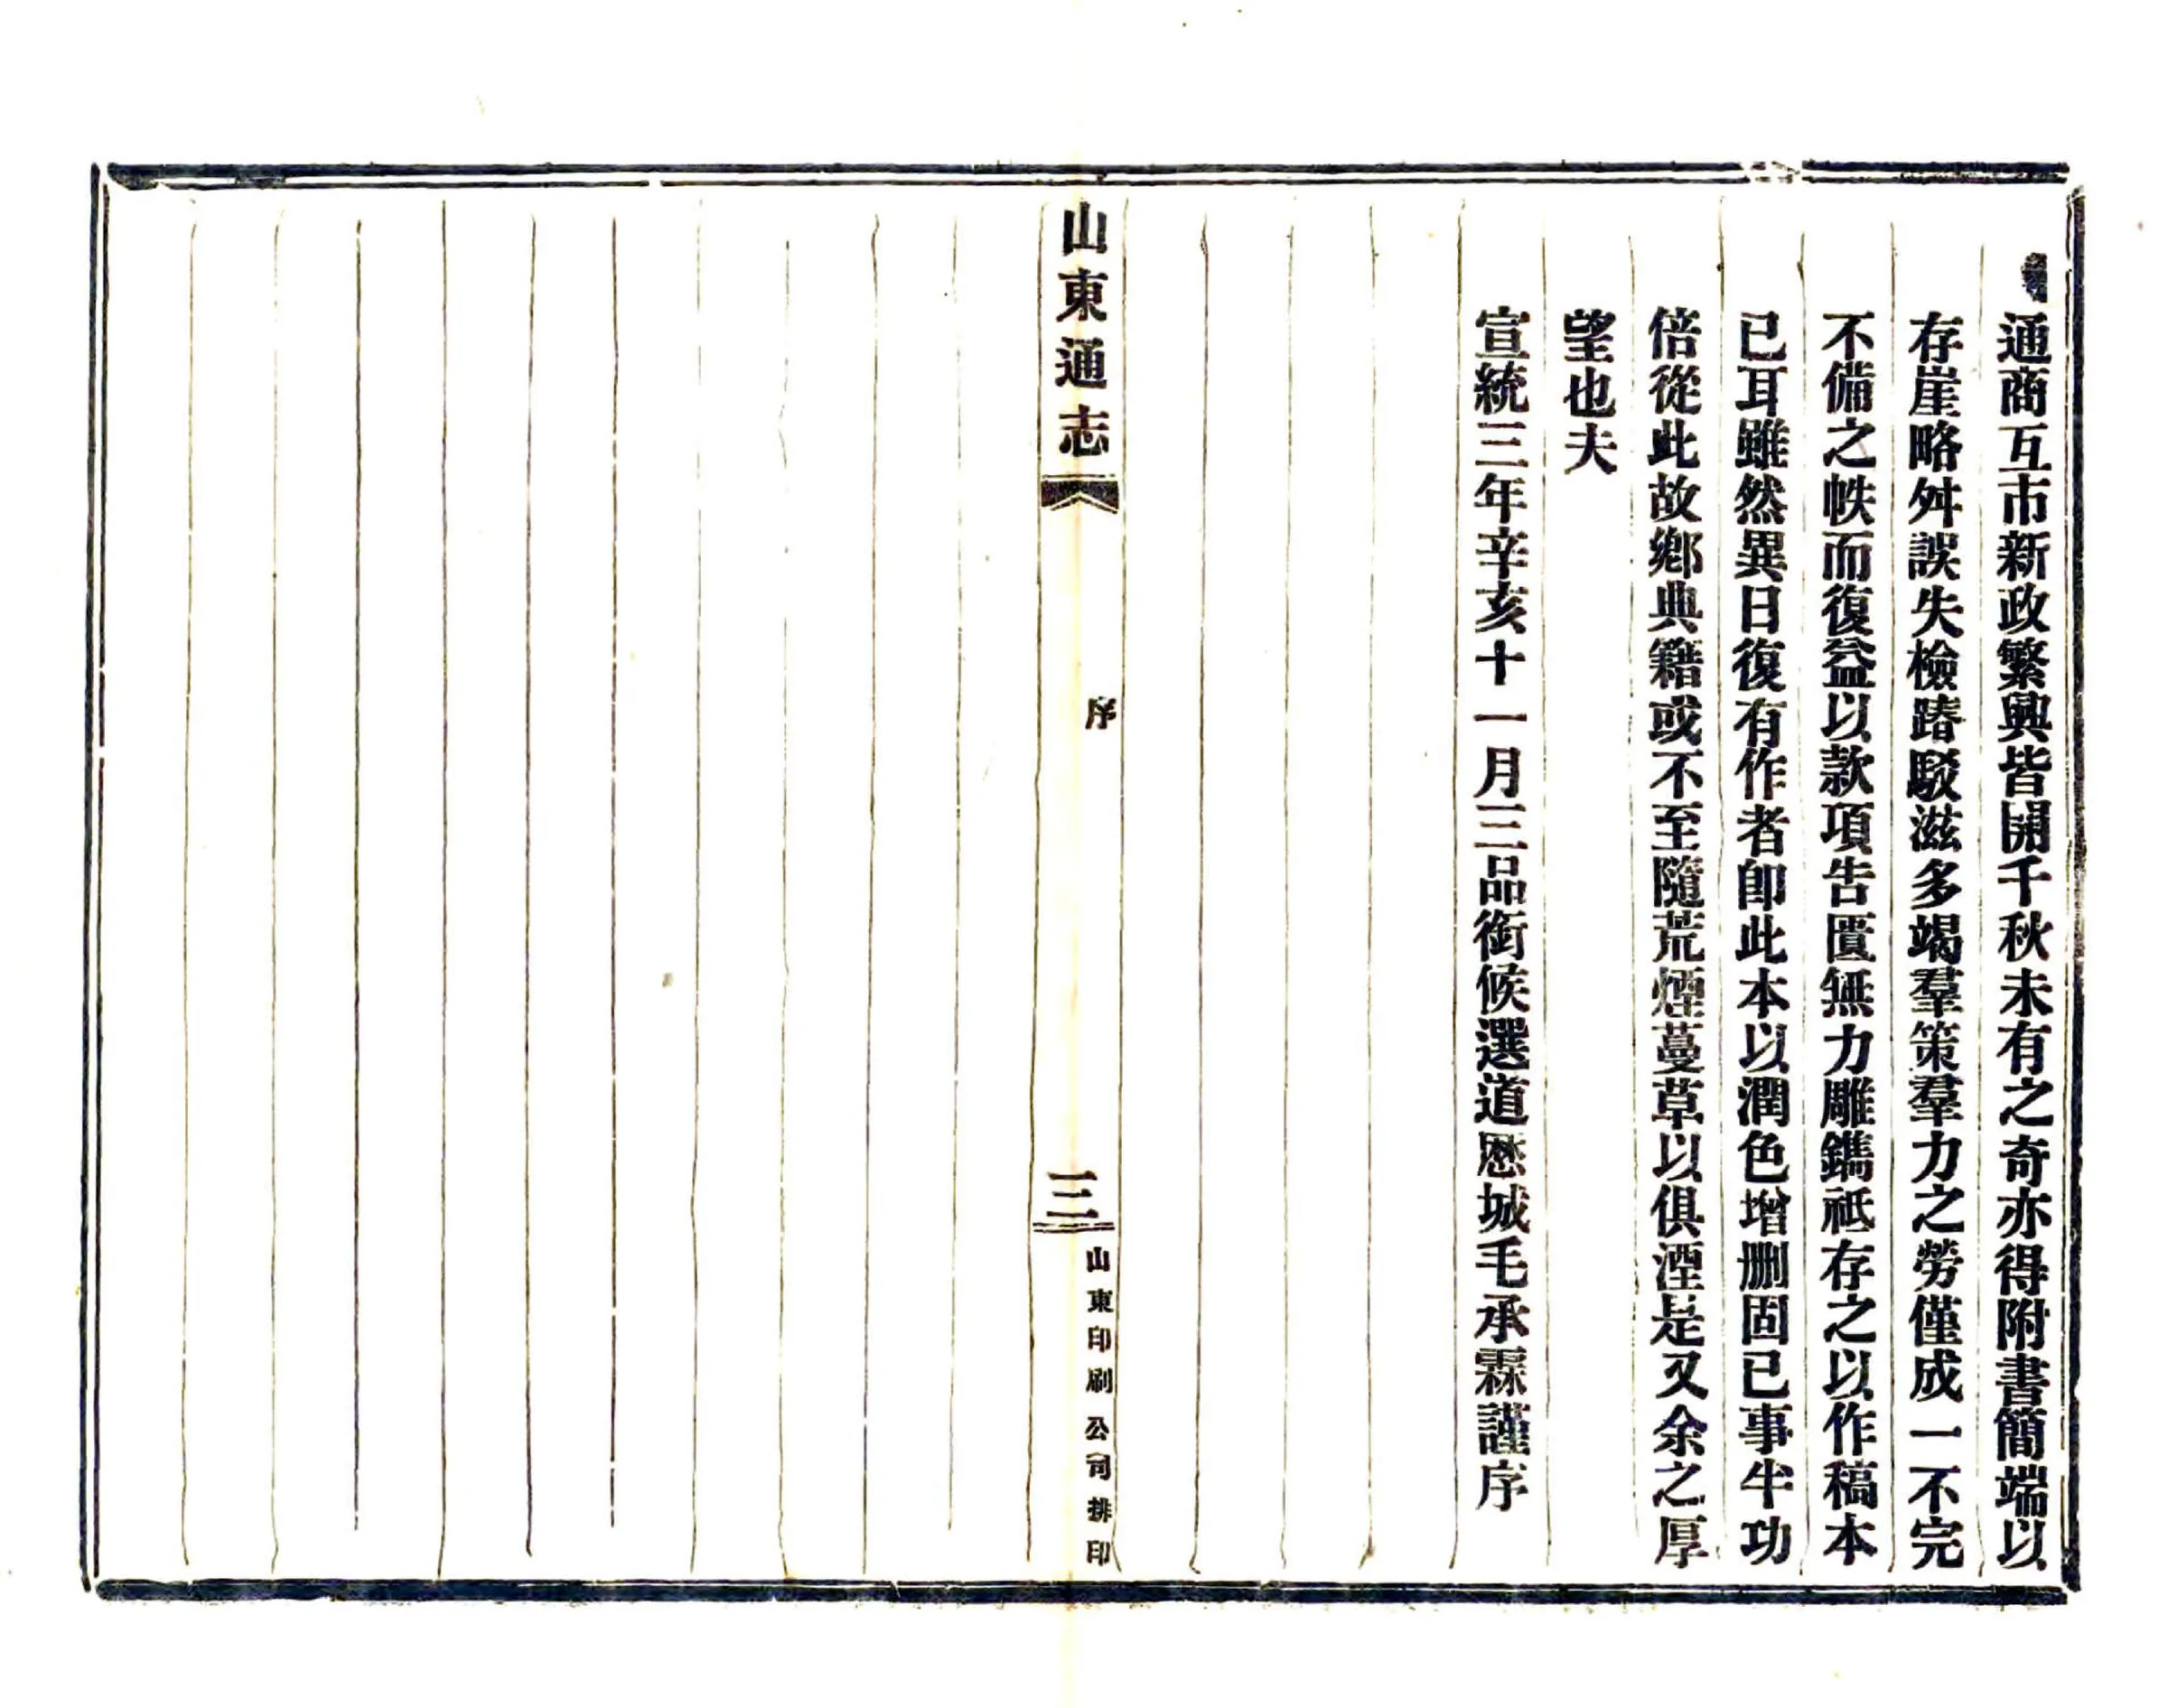 通商互市新政繁興皆開千秋未有之奇亦得附書簡端以
存崖略舛誤失檢踳駁滋多竭羣策羣力之勞僅成一不完
不備之帙而復益以款項告匱無力雕鐫祗存之以作稿本
已耳雖然異日復有作者卽此本以潤色增刪固已事半功
倍從此故鄕典籍或不至隨荒煙蔓草以俱湮是又余之厚
望也夫
宣統三年辛亥十一月三品銜候選道歷城毛承霖謹序
山東通志
序
三
山東印刷公司排印